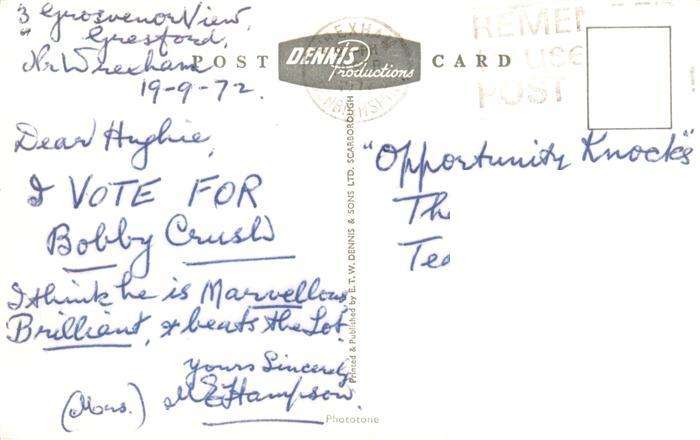 3 Grosvenor View,
Gresford,
Nr Wrexham
19-9-72.
POST CARD
DENNIS
Productions
REME
USE
POST
Dear Hughie,
I VOTE FOR
Bobby Crush
I think he is Marvellous,
Brilliant, & beats the Lot.
Yours Sincerely,
(Mrs.) M E Hampson.
Printed & Published by E. T. W. DENNIS & SONS LTD. SCARBOROUGH
"Opportunity Knocks"
Th
Tea
Phototone